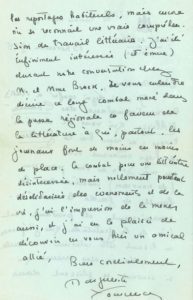 les reportages habituels, mais
où se reconnaît une vraie compréhen-
sion du travail littéraire. J'ai été
infiniment intéressée (et émue)
durant notre conversation chez
M. et Mme Brock. Je vous
le combat mené dans
la presse régionale en faveur de
la littérature à qui, partout, les
journaux font de moins en moins
de place. Le combat pour une
désintéressée, mais nullement pourtant
désintéressée des événements et de la
vie, j'ai l'impression de le mener
aussi, et j'ai eu le plaisir de
découvrir en vous hier un amical
allié,
Bien cordialement,
Marguerite
Yourcenar